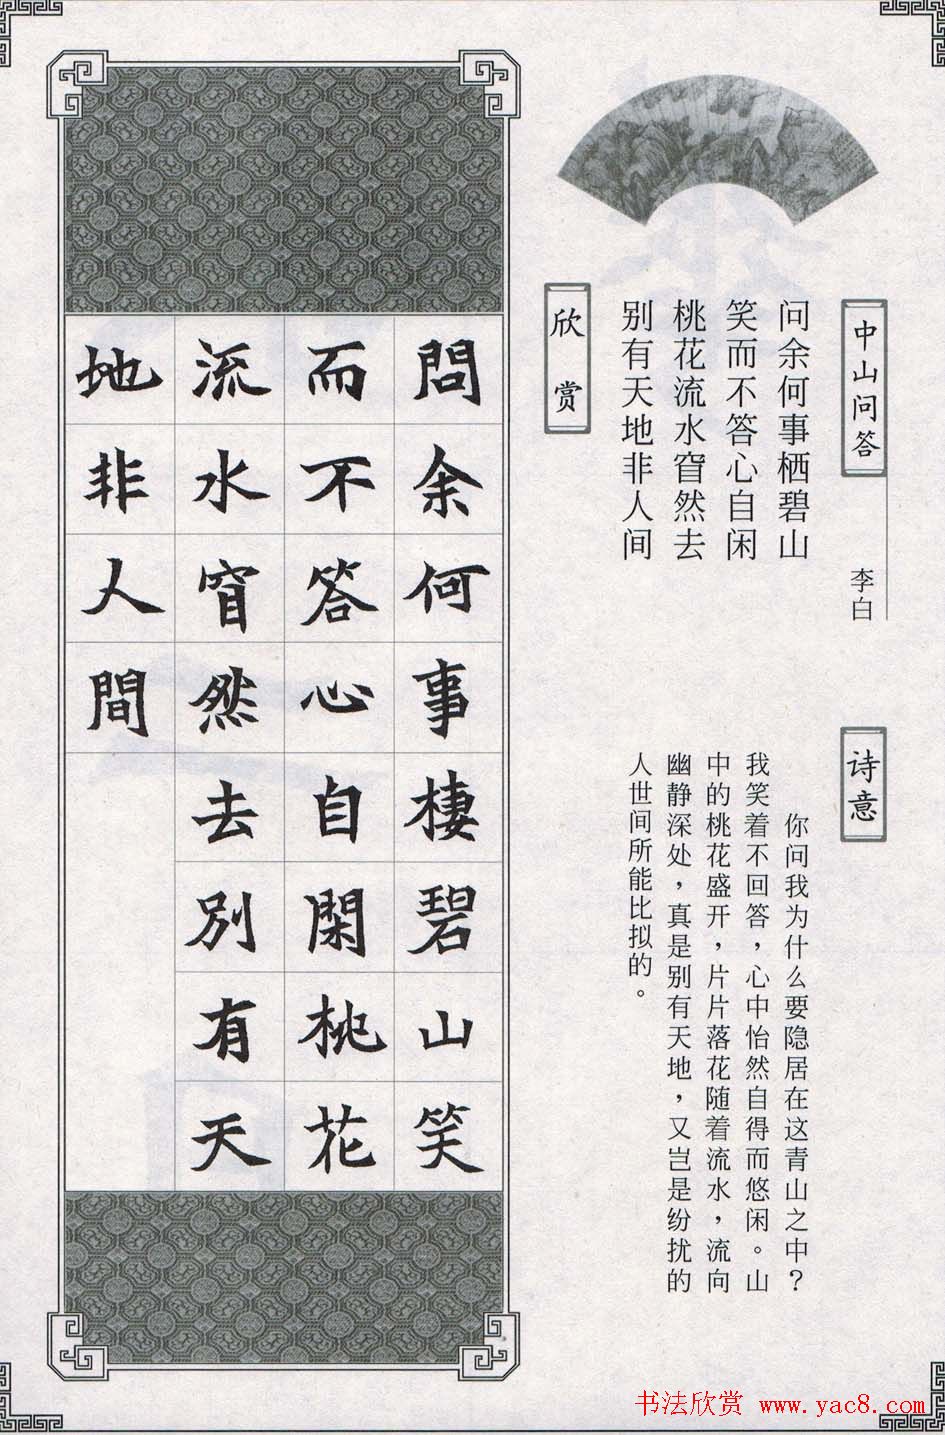 中山问答
李白
问余何事栖碧山
笑而不答心自闲
桃花流水窅然去
别有天地非人间
诗意
你问我为什么要隐居在这青山之中？
我笑着不回答，心中怡然自得而悠闲。山
中的桃花盛开，片片落花随着流水，流向
幽静深处，真是别有天地，又岂是纷扰的
人世间所能比拟的。
欣赏
問余何事棲碧山笑
而不答心自閑桃花
流水窅然去別有天
地非人間
书法欣赏 www.yac8.com